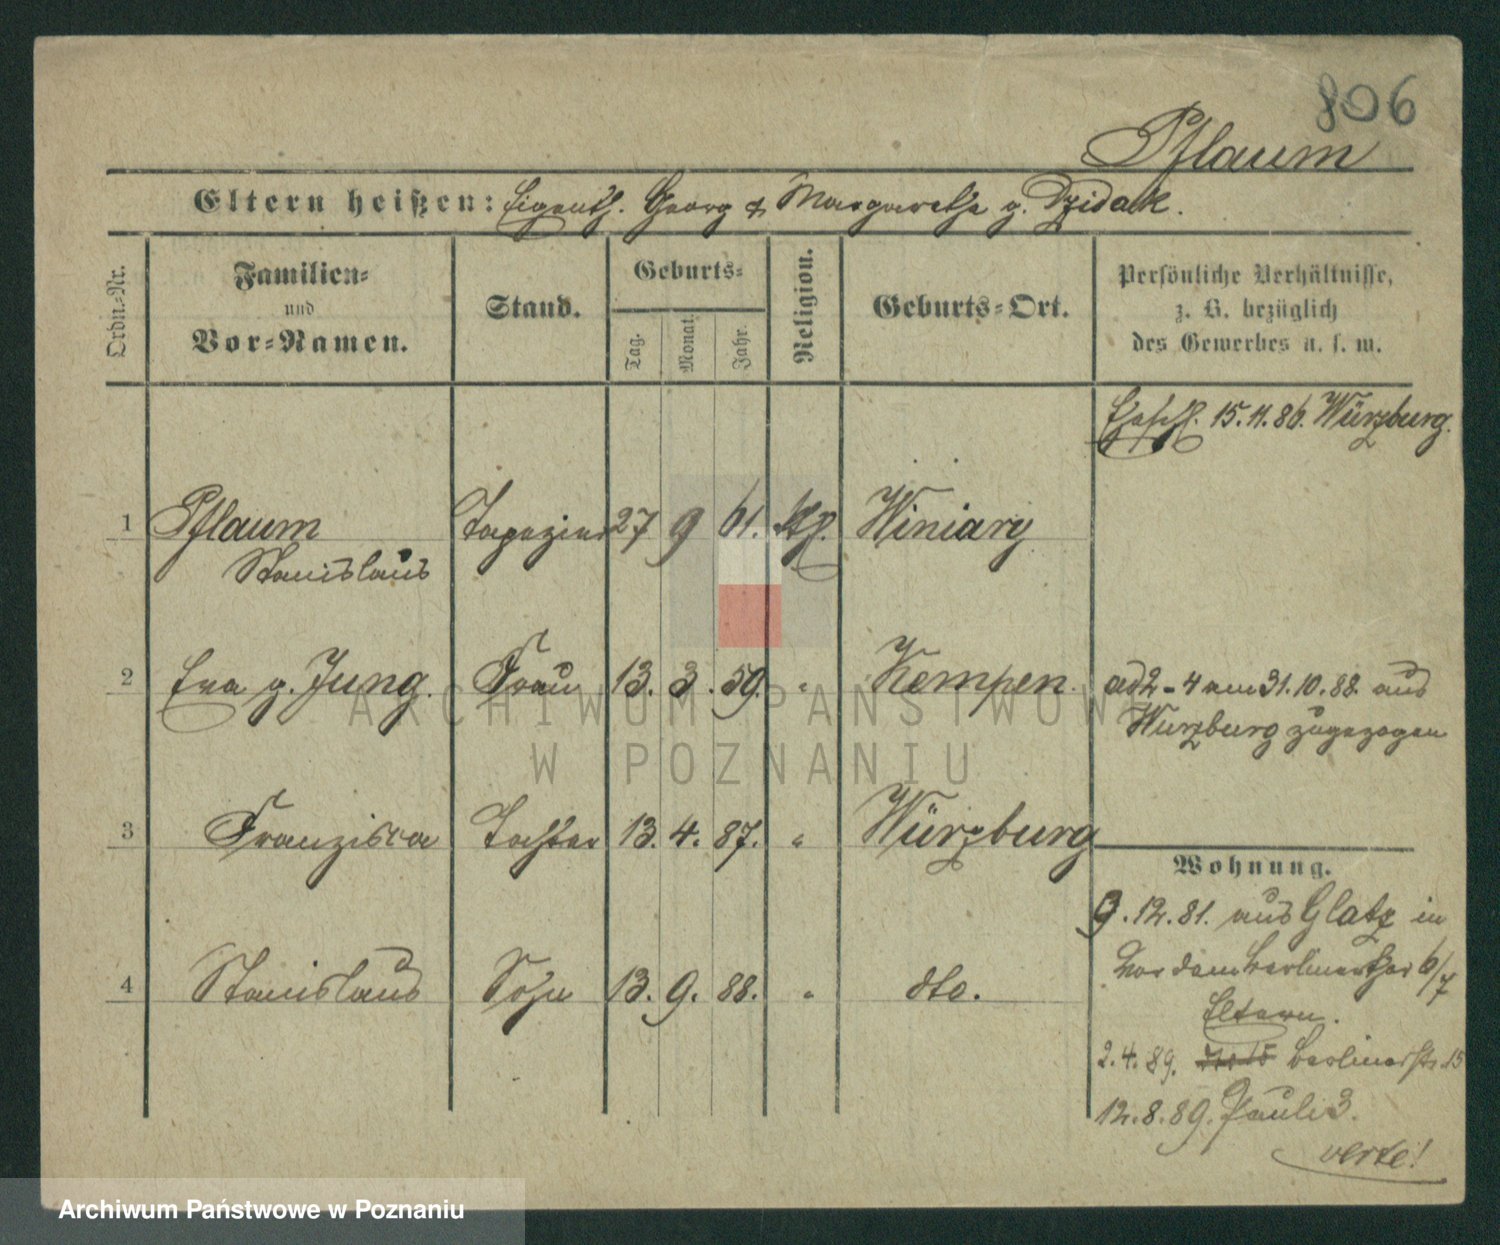 806
Pflaum
Eltern heißen: Eigenth. Georg & Margaretha g. Dzidak.
Ordn.-Nr.
Familien-
und
Vor-Namen.
Stand.
Geburts-
Tag.
Monat.
Jahr.
Religion.
Geburts-Ort.
Persönliche Verhältnisse,
z. B. bezüglich
des Gewerbes u. s. w.
Ehesch. 15.11.86. Würzburg.
1 Pflaum Tapezier 27 9 61. kth. Winiary
Stanislaus
2 Eva g. Jung. Frau 13. 3. 59. " Kempen.
ad 2-4 am 31.10.88. aus
Würzburg zugezogen
3 Franziska Tochter 13. 4. 87. " Würzburg
4 Stanislaus Sohn 13. 9. 88. " dto.
Wohnung.
9.12.81. aus Glatz in
Vor dem Berlinerthor 6/7
Eltern.
2.4.89. Berlinerstr. 15
12.8.89. Pauli 3.
verte!
ARCHIWUM PAŃSTWOWE
W POZNANIU
Archiwum Państwowe w Poznaniu